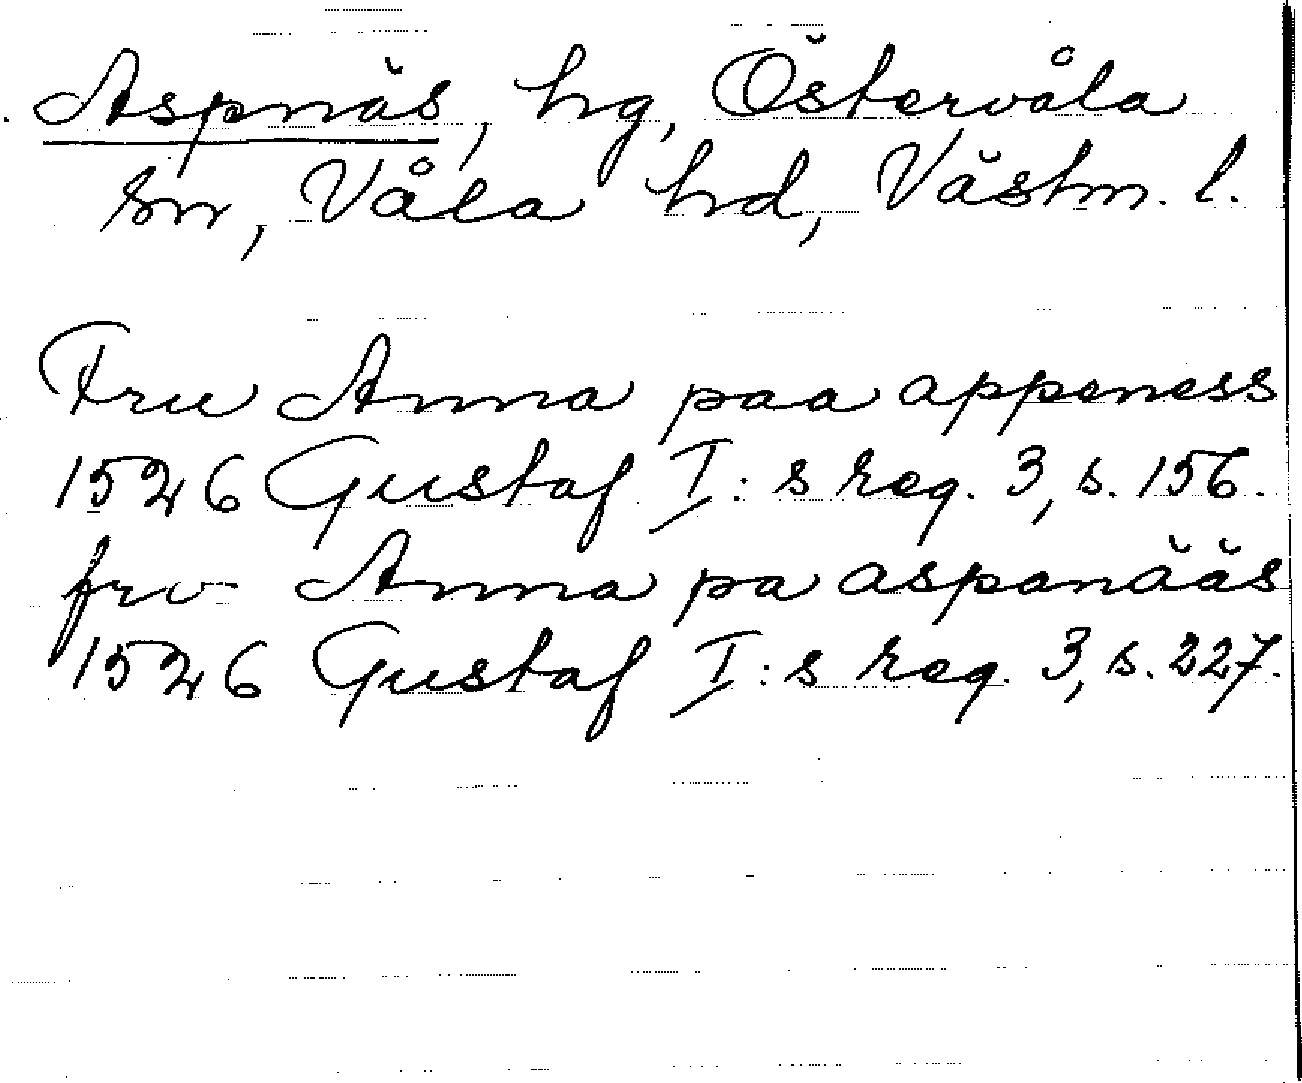 Aspnäs, hg, Östervåla
sn, Våla hd, Västm. l.
Fru Anna paa appeness
1526 Gustaf I:s reg. 3, s. 156.
frv Anna pa aspanääs
1526 Gustaf I:s reg. 3, s. 227.